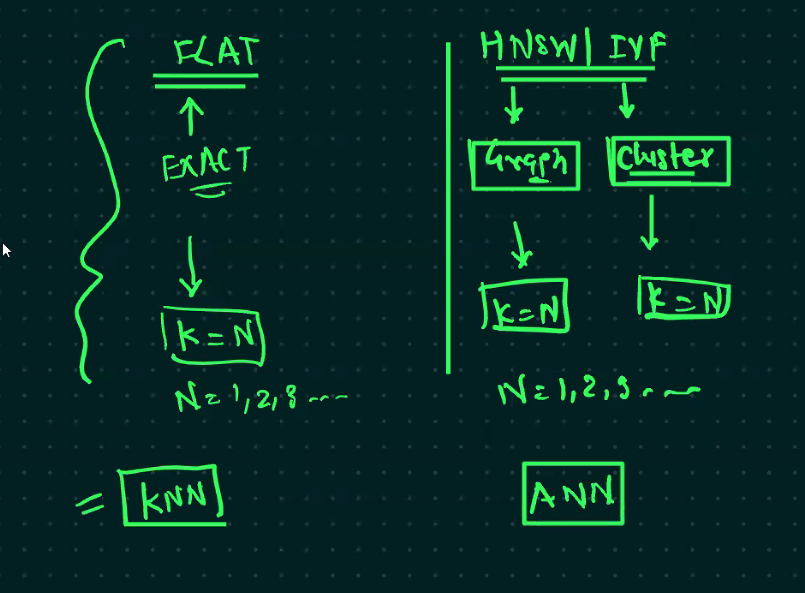 FLAT
EXACT
K=N
N=1,2,3---
= KNN
HNSW| IVF
Graph Cluster
K=N K=N
N=1,2,3---
ANN